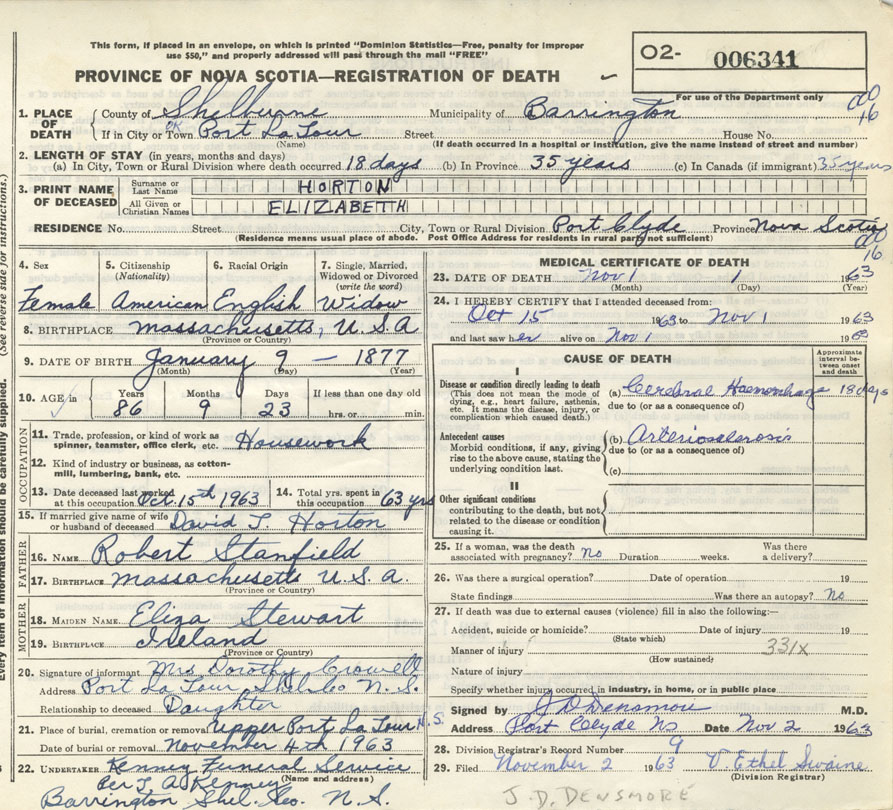 This form, if placed in an envelope, on which is printed "Dominion Statistics—Free, penalty for improper
use $50," and properly addressed will pass through the mail "FREE"
PROVINCE OF NOVA SCOTIA—REGISTRATION OF DEATH
02- 006341
For use of the Department only
1. PLACE OF DEATH { County of Shelburne Municipality of Barrington
If in City or Town Port La Tour Street House No.
(Name) (If death occurred in a hospital or institution, give the name instead of street and number)
16
2. LENGTH OF STAY (in years, months and days)
(a) In City, Town or Rural Division where death occurred 18 days (b) In Province 35 years (c) In Canada (if immigrant) 35 years
3. PRINT NAME OF DECEASED { Surname or Last Name HORTON
All Given or Christian Names ELIZABETH
RESIDENCE No. Street City, Town or Rural Division Port Clyde Province Nova Scotia
(Residence means usual place of abode. Post Office Address for residents in rural parts not sufficient)
16
4. Sex 5. Citizenship (Nationality) 6. Racial Origin 7. Single, Married, Widowed or Divorced (write the word)
Female American English Widow
8. BIRTHPLACE Massachusetts, U.S.A
(Province or Country)
9. DATE OF BIRTH January 9 — 1877
(Month) (Day) (Year)
10. AGE in Years Months Days If less than one day old
86 9 23 hrs. or min.
OCCUPATION
11. Trade, profession, or kind of work as spinner, teamster, office clerk, etc. Housework
12. Kind of industry or business, as cotton-mill, lumbering, bank, etc.
13. Date deceased last worked at this occupation Oct. 15th 1963 14. Total yrs. spent in this occupation 63 yrs
15. If married give name of wife or husband of deceased David T. Horton
FATHER
16. NAME Robert Stanfield
17. BIRTHPLACE Massachusetts U.S.A.
(Province or Country)
MOTHER
18. MAIDEN NAME Eliza Stewart
19. BIRTHPLACE Ireland
(Province or Country)
20. Signature of informant Mrs Dorothy Crowell
Address Port La Tour Shel. Co N.S.
Relationship to deceased Daughter
21. Place of burial, cremation or removal Upper Port La Tour N.S.
Date of burial or removal November 4th 1963
22. UNDERTAKER Kenney Funeral Service
(Name and address)
Per J. A. Kenney
Barrington Shel. Co. N.S.
MEDICAL CERTIFICATE OF DEATH
23. DATE OF DEATH Nov 1 1 1963
(Month) (Day) (Year)
24. I HEREBY CERTIFY that I attended deceased from:
Oct 15 1963 to Nov 1 1963
and last saw her alive on Nov 1 1963
CAUSE OF DEATH
Approximate interval between onset and death
I
Disease or condition directly leading to death
(This does not mean the mode of dying, e.g., heart failure, asthenia, etc. It means the disease, injury, or complication which caused death.)
(a) Cerebral Haemorrhage 18 days
due to (or as a consequence of)
Antecedent causes
Morbid conditions, if any, giving rise to the above cause, stating the underlying condition last.
(b) Arteriosclerosis
due to (or as a consequence of)
(c)
II
Other significant conditions
contributing to the death, but not related to the disease or condition causing it.
25. If a woman, was the death associated with pregnancy? No Duration weeks. Was there a delivery?
26. Was there a surgical operation? Date of operation 19
State findings Was there an autopsy? No
27. If death was due to external causes (violence) fill in also the following:—
Accident, suicide or homicide? Date of injury 19
(State which)
Manner of injury 331X
(How sustained)
Nature of injury
Specify whether injury occurred in industry, in home, or in public place
Signed by J D Densmore M.D.
Address Port Clyde NS Date Nov 2 1963
28. Division Registrar's Record Number 9
29. Filed November 2 1963 V. Ethel Swaine
(Division Registrar)
J. D. DENSMORE
(See reverse side for instructions.)
Every item of information should be carefully supplied.